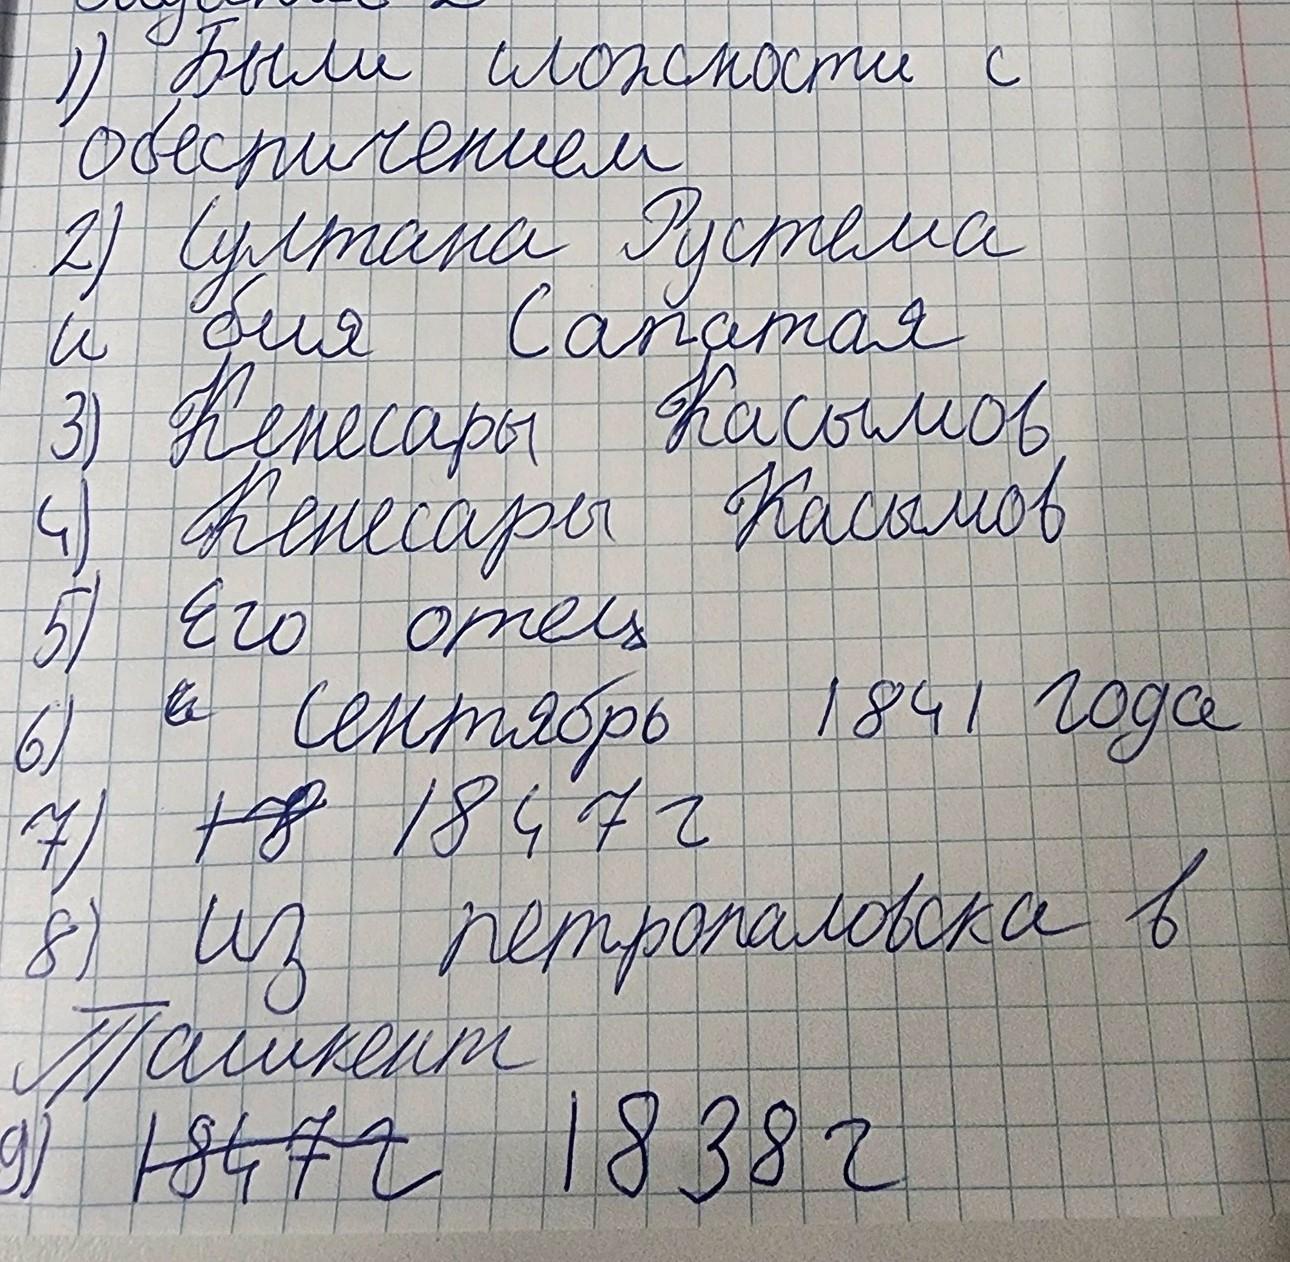 Задание 2
1) Были сложности с
обеспичением
2) Султана Рустема
и бия Сапатая
3) Кенесары Касымов
4) Кенесары Касымов
5) Его отец
6) в Сентябрь 1841 года
7) 18 1847 г
8) из петропаловска в
Ташкент
9) 1847г 1838 г